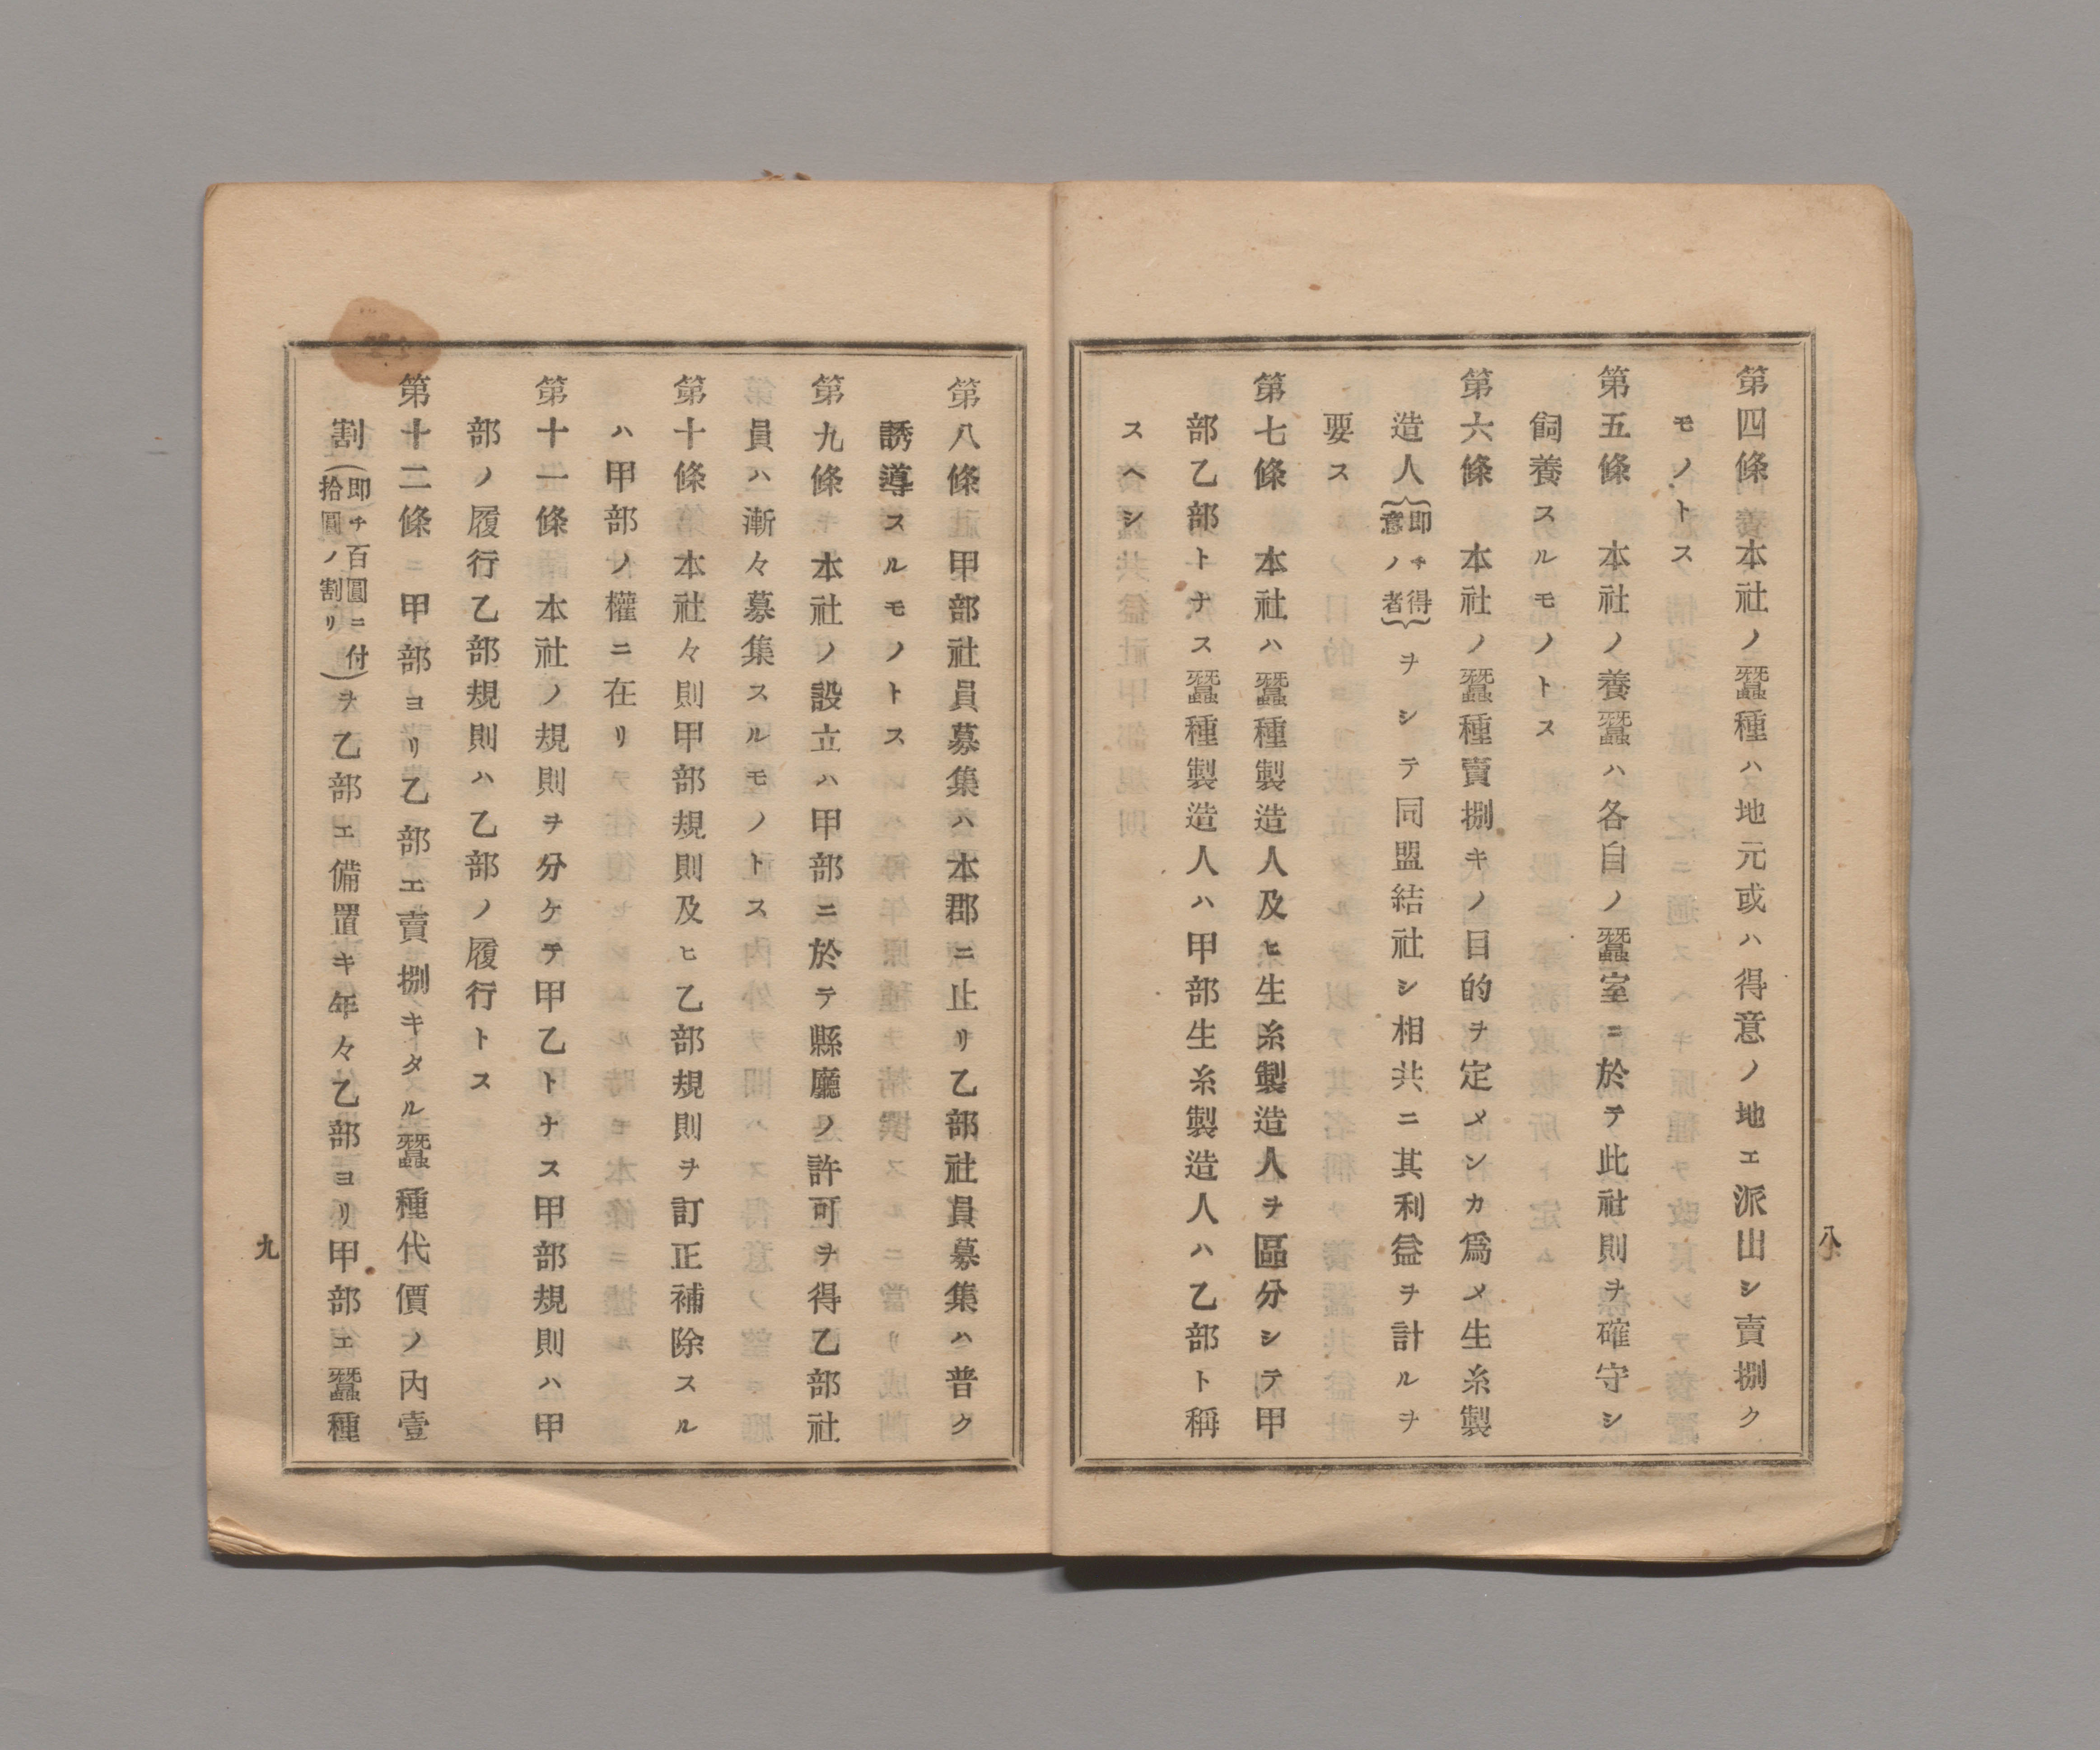 第四條　本社ノ蠶種ハ地元或ハ得意ノ地エ派出シ賣捌ク
モノトス
第五條　本社ノ養蠶ハ各自ノ蠶室ニ於テ此社則ヲ確守シ
飼養スルモノトス
第六條　本社ノ蠶種賣捌キノ目的ヲ定メンカ爲メ生糸製
造人｛即チ得意ノ者｝ヲシテ同盟結社シ相共ニ其利益ヲ計ルヲ
要ス
第七條　本社ハ蠶種製造人及ヒ生糸製造人ヲ區分シテ甲
部乙部トナス蠶種製造人ハ甲部生糸製造人ハ乙部ト稱
スヘシ
八
第八條　甲部社員募集ハ本郡ニ止リ乙部社員募集ハ普ク
誘導スルモノトス
第九條　本社ノ設立ハ甲部ニ於テ縣廳ノ許可ヲ得乙部社
員ハ漸々募集スルモノトス
第十條　本社々則甲部規則及ヒ乙部規則ヲ訂正補除スル
ハ甲部ノ權ニ在リ
第十一條　本社ノ規則ヲ分ケテ甲乙トナス甲部規則ハ甲
部ノ履行乙部規則ハ乙部ノ履行トス
第十二條　甲部ヨリ乙部エ賣捌キタル蠶種代價ノ内壹
割（即チ百圓ニ付拾圓ノ割リ）ヲ乙部エ備置キ年々乙部ヨリ甲部エ蠶種
九